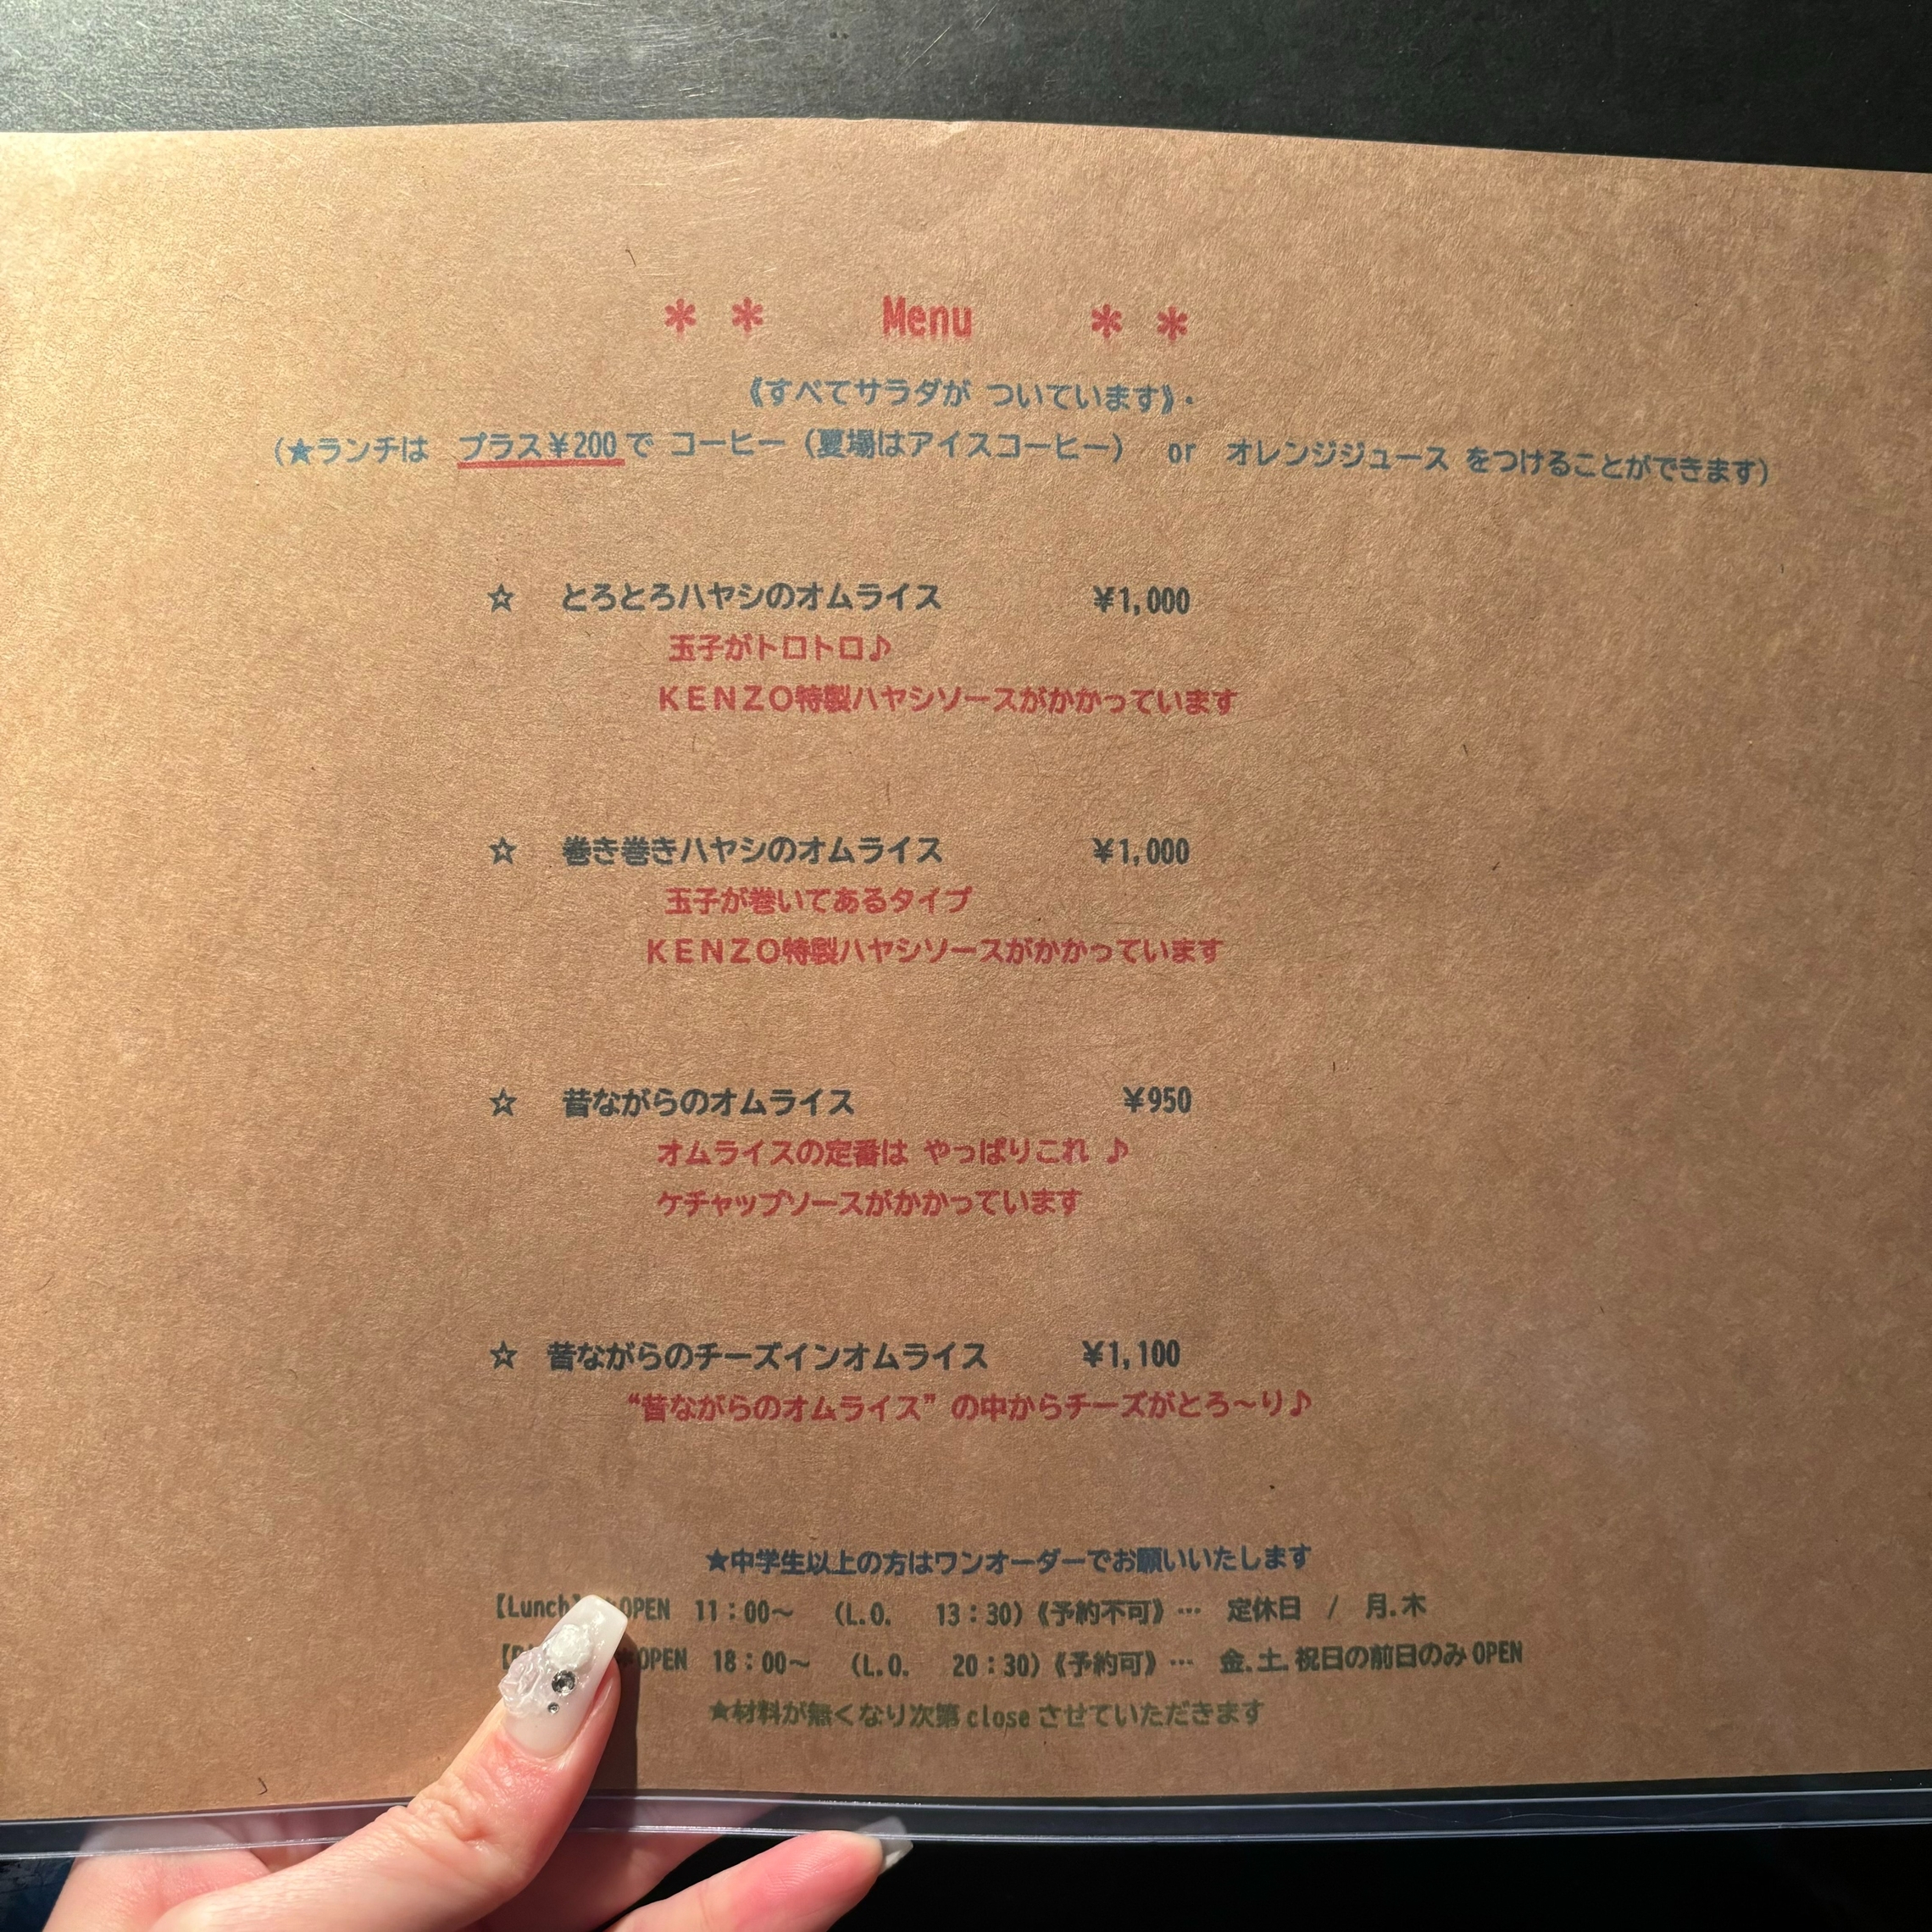 ＊ ＊ Menu ＊ ＊
《すべてサラダが ついています》.
(★ランチは プラス￥200で コーヒー（夏場はアイスコーヒー） or オレンジジュース をつけることができます)
☆ とろとろハヤシのオムライス ￥1,000
玉子がトロトロ♪
ＫＥＮＺＯ特製ハヤシソースがかかっています
☆ 巻き巻きハヤシのオムライス ￥1,000
玉子が巻いてあるタイプ
ＫＥＮＺＯ特製ハヤシソースがかかっています
☆ 昔ながらのオムライス ￥950
オムライスの定番は やっぱりこれ ♪
ケチャップソースがかかっています
☆ 昔ながらのチーズインオムライス ￥1,100
“昔ながらのオムライス” の中からチーズがとろ～り♪
★中学生以上の方はワンオーダーでお願いいたします
【Lunch】 OPEN 11：00～ (L.O. 13：30)《予約不可》… 定休日 / 月.木
OPEN 18：00～ (L.O. 20：30)《予約可》… 金.土.祝日の前日のみOPEN
★材料が無くなり次第closeさせていただきます